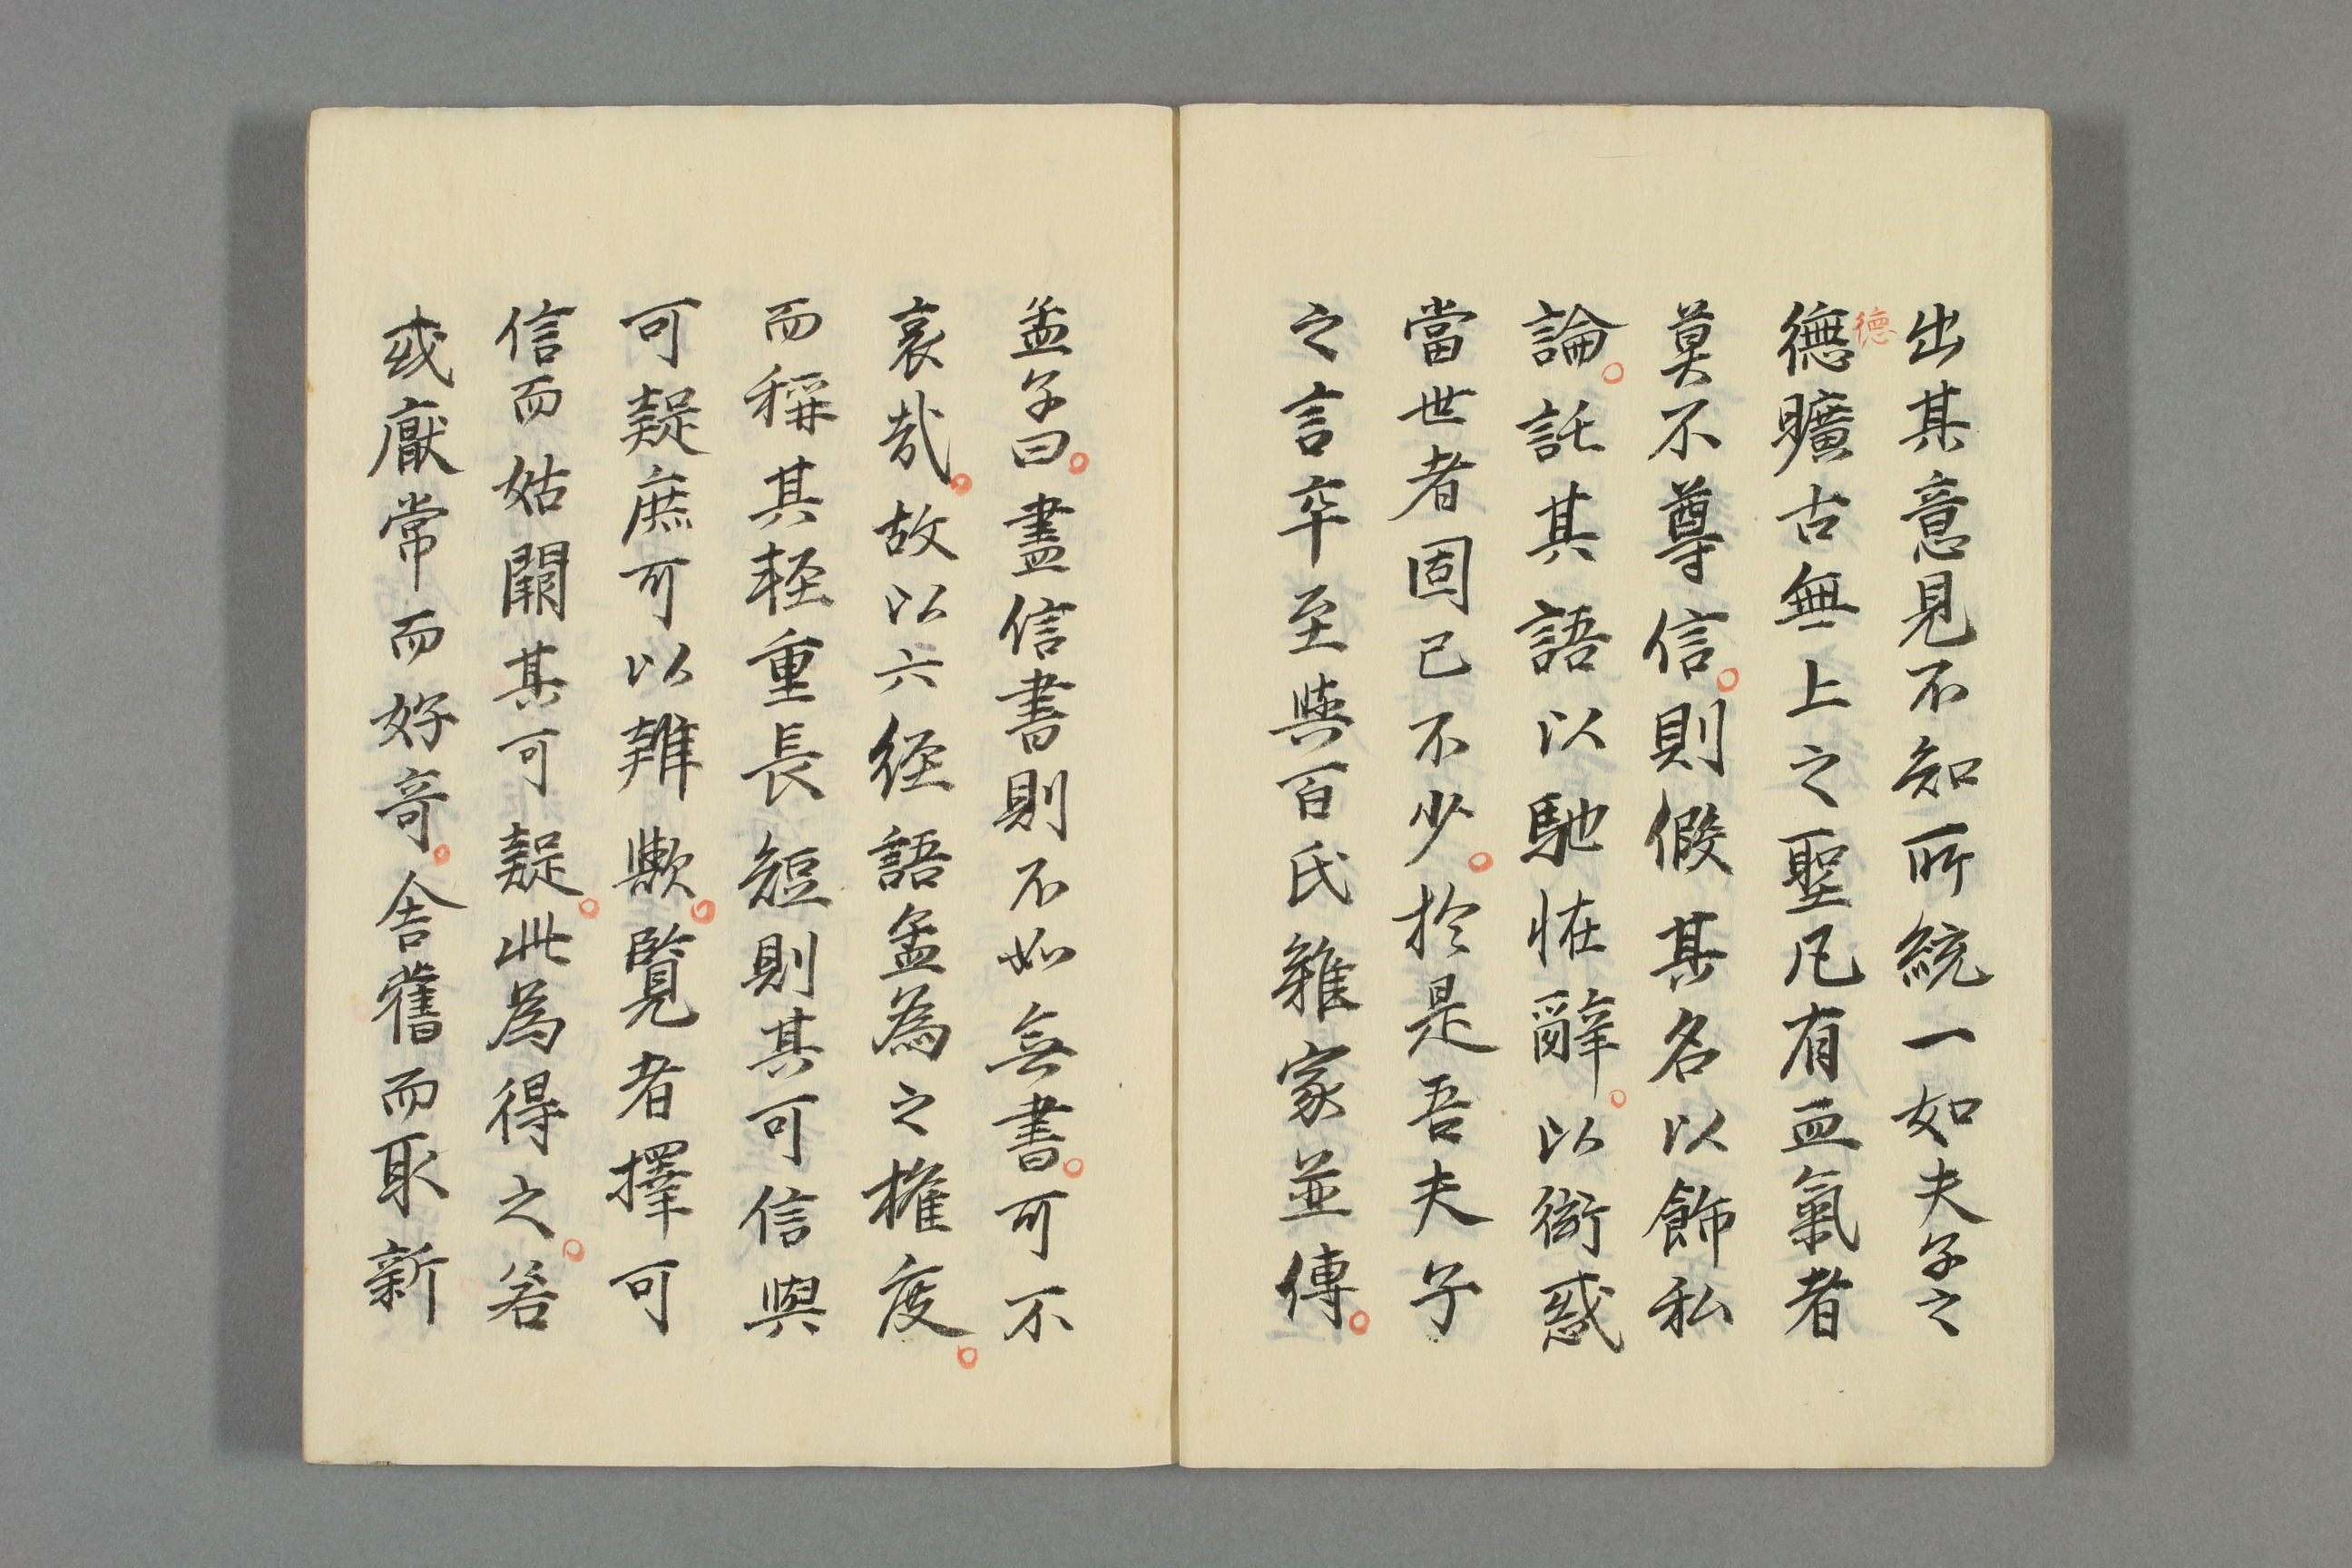 出其意見不知所統一如夫子之
德
德曠古無上之聖凡有血氣者
莫不尊信。則假其名以飾私
論。託其語以馳恠辭。以衒惑
當世者固已不少。於是吾夫子
之言卒至與百氏雜家並傳。
孟子曰。盡信書則不如無書。可不
哀哉。故以六経語孟為之権度。
而稱其軽重長短則其可信與
可疑庶可以辨歟。覧者擇可
信而姑闕其可疑。此為得之。若
或厭常而好奇。舍舊而取新